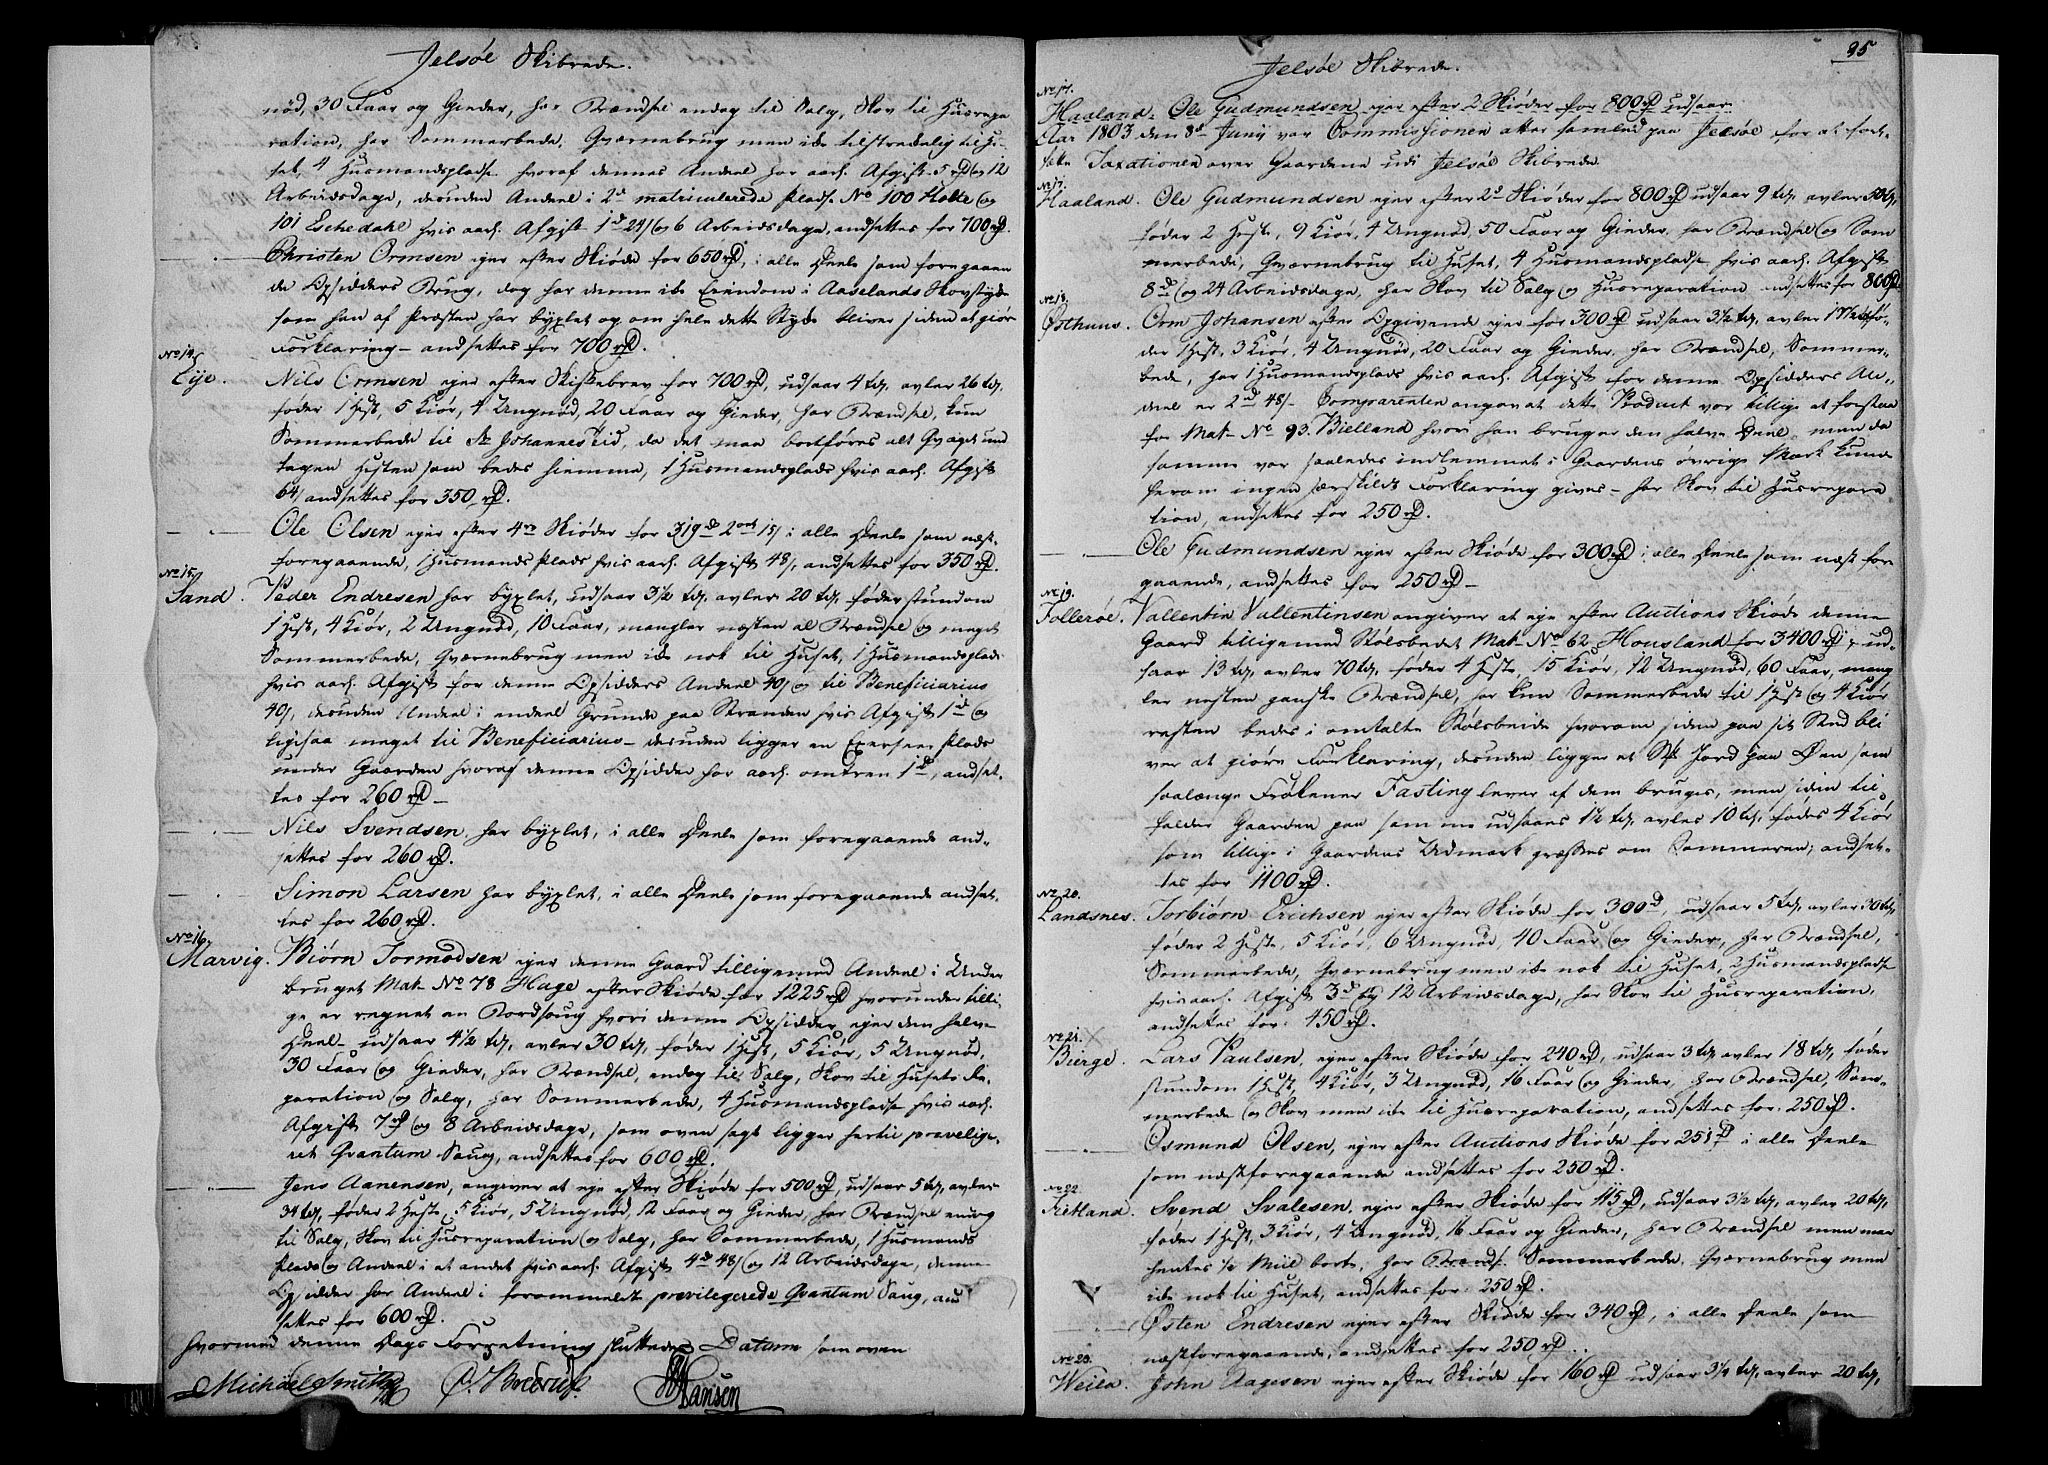 Jelsøe Skibrede.
nød, 30 Faar og Gieder, har Brændsel endog til Salg, Skov til Huusrepa
ration, har Sommerbede, Qværnebrug men ike tilstrekelig til Hu-
set, 4 Huusmandspladse hvoraf dennes Andeel har aarl. Afgift 5 rd og 12
Arbeidsdage, desuden Andeel i 2de matriculerede Pladse No 100 Holle og
101 Eschedahl hvis aarl. Afgift 1d 24s og 6 Arbeidsdage, andsettes for 700 rd.
Christen Ormsen ejer efter Skiøde for 650 rd, i alle Deele som foregaaen
de Opsidders Brug, dog har denne ike Eiendom i Aaselands Skovstyke
som han af Præsten har byxlet og om hele dette Styke bliver siden at giøre
Forklaring – andsettes for 700 rd.
No 14.
Eije.
Nils Ormsen ejer efter Skiftebrev for 700 rd, udsaar 4 td, avler 26 td,
føder 1 Hest, 5 Kiør, 4 Ungnød, 20 Faar og Gieder, har Brændsel, kun
Sommerbede til St Johannes tid, da det maa bortføres alt Qvæget und
tagen Hesten som bedes hiemme, 1 Huusmandsplads hvis aarl. Afgift
64s andsettes for 350 rd.
Ole Olsen ejer efter 4re Skiøder for 319 d 2 ort 15s i alle Deele som næst-
foregaaende, 1 Huusmands Plads hvis aarl. Afgift 48s, andsettes for 350 rd.
No 15.
Sand.
Peder Endresen har byxlet, udsaar 3½ td, avler 20 td, føder stundom
1 Hest, 4 Kiør, 2 Ungnød, 10 Faar, mangler næsten al Brændsel og meget
Sommerbede, Qværnebrug men ike nok til Huset, 1 Huusmandsplads
hvis aarl. Afgift for denne Opsidders Andeel 40s og til Beneficiarius
40s, desuden Andeel i endeel Grunde paa Stranden hvis Afgift 1d og
ligesaa meget til Beneficiarius – desuden ligger en Exerseer Plads
under Gaarden hvoraf denne Opsidder har aarl. omtren 1d, andset-
tes for 260 rd –
Nils Svendsen, har byxlet, i alle Deele som foregaaende and-
settes for 260 rd.
Simon Larsen har byxlet, i alle Deele som foregaaende andset-
tes for 260 rd.
No 16.
Marvig.
Biørn Tormodsen ejer denne Gaard tilligemed Andeel i Under
bruget Mat. No 78 Hage efter Skiøde for 1225 rd hvorunder tilli
ge er regnet en Bordsaug hvori denne Opsidder ejer den halve
Deel – udsaar 4½ td, avler 30 td, føder 1 Hest, 5 Kiør, 5 Ungnød,
30 Faar og Gieder, har Brændsel, endog til Salg, Skov til Husets Re-
paration og Salg, har Sommerbede, 4 Huusmandspladse hvis aarl.
Afgift 7 rd og 8 Arbeidsdage, som oven sagt ligger hertil previlige-
ret Qvantum Saug, andsettes for 600 rd.
Jens Aanensen, angiver at eje efter Skiøde for 500 rd, udsaar 5 td, avler
34 td, føder 2 Heste, 5 Kiør, 5 Ungnød, 12 Faar og Gieder, har Brændsel endog
til Salg, Skov til Huusreparation og Salg, har Sommerbede, 1 Huusmands
Plads og Andeel i et andet hvis aarl. Afgift 4d 48s og 12 Arbeidsdage, denne
Opsidder har Andeel i forommeldte previlegerede Qvantum Saug, and
settes for 600 rd.
Hvormed denne Dags Forretning sluttedes Datum som oven
Michael Smith
Hansen
95
Jelsøe Skibrede.
No 17.
Haaland. Ole Gudmundsen ejer efter 2 Skiøder for 800 rd udsaar
Aar 1803 den 8de Junij var Commissionen atter samled paa Jelsøe for at fort-
sette Taxationen over Gaardene udi Jelsøe Skibrede.
No 17.
Haaland.
Ole Gudmundsen ejer efter 2de Skiøder for 800 rd udsaar 9 td, avler 50 td,
føder 2 Heste, 9 Kiør, 4 Ungnød, 50 Faar og Gieder, har Brændsel og Som
merbede, Qværnebrug til Huset, 4 Huusmandspladse hvis aarl. Afgift
8d og 24 Arbeidsdage, har Skov til Salg og Huusreparation andsettes for 800 rd.
No 18.
Østhuus.
Orm Johansen efter Opgivende ejer for 300 rd udsaar 3½ td, avler 17½ td fø-
der 1 Hest, 3 Kiør, 4 Ungnød, 20 Faar og Gieder, har Brændsel, Sommer-
bede, har 1 Huusmandsplads hvis aarl. Afgift for denne Opsidders An-
deel er 2d 48s – Comparenten angav at dette Product var tillige at forstaa
for Mat. No 93. Bielland hvori han bruger den halve Deel, men da
samme var saaledes indlemmet i Gaardens øvrige Mark kunde
herom ingen særskildt Forklaring gives – har Skov til Huusrepara
tion, andsettes for 250 rd.
Ole Gudmundsen ejer efter Skiøde for 300 rd i alle Deele som næst fore
gaaende, andsettes for 250 rd –
No 19.
Follerøe.
Vallentin Vallentinsen angiver at eje efter Auctions Skiøde denne
Gaard tilligemed Stølsbedet Mat. No 62 Housland for 3400 rd, ud-
saar 13 td, avler 70 td, føder 4 Heste, 15 Kiør, 12 Ungnød, 60 Faar, mang
ler nesten ganske Brændsel, har kun Sommerbede til 1 Hest og 4 Kiør
resten bedes i omtalte Stølsbeide hvorom siden paa sit Sted bli
ver at giøre Forklaring, desuden ligger et St. Jord paa Øen som
saalænge Frøkener Fasting lever af dem bruges, men siden til-
falder Gaarden paa som me udsaaes 1½ td, avles 10 td, fødes 4 Kiør
som tillige i Gaardens Udmark græsses om Sommeren, andset-
tes for 1100 rd.
No 20.
Landsnes.
Torbiørn Erichsen ejer efter Skiøde for 300d, udsaar 5 td, avler 30 td,
føder 2 Heste, 5 Kiør, 6 Ungnød, 40 Faar og Gieder, har Brændsel,
Sommerbede, Qværnebrug men ike nok til Huset, 2 Huusmandspladse
hvis aarl. Afgift 3d og 12 Arbeidsdage, har Skov til Huusreparation,
andsettes for 450 rd.
No 21.
Bierge.
Lars Paulsen, ejer efter Skiøde for 240 rd, udsaar 3 td, avler 18 td, føder
stundom 1 Hest, 4 Kiør, 3 Ungnød, 16 Faar og Gieder, har Brændsel, Som-
merbede og Skov men ike til Huusreparation, andsettes for 250 rd.
Osmund Olsen, ejer efter Auctions Skiøde for 251 rd i alle Deele
som næstforegaaende andsettes for 250 rd.
No 22.
Tietland.
Svend Svalesen, ejer efter Skiøde for 115 rd, udsaar 3½ td, avler 20 td,
føder 1 Hest, 3 Kiør, 4 Ungnød, 16 Faar og Gieder, har Brændsel men maa
hentes ½ Miil borte, har Brænds. Sommerbede, Qværnebrug men
ike nok til Huset, andsettes for 250 rd.
Østen Endresen ejer efter Skiøde for 340 rd, i alle Deele som
næstforegaaende, andsettes for 250 rd.
No 23.
Weila.
John Aagesen ejer efter Skiøde for 160 rd udsaar 3½ td, avler 20 td,